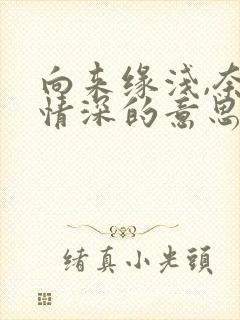 向来缘浅,奈
情深的意思
绪真小光頭